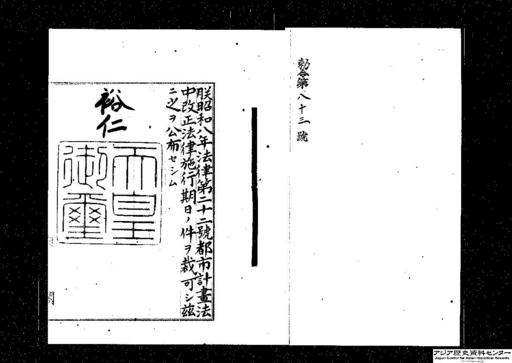 勅令第八十三號
朕昭和八年法律第二十二號都市計畫法
中改正法律施行期日ノ件ヲ裁可シ茲
ニ之ヲ公布セシム
裕仁
天皇
御璽
閣
アジア歴史資料センター
Japan Center for Asian Historical Records